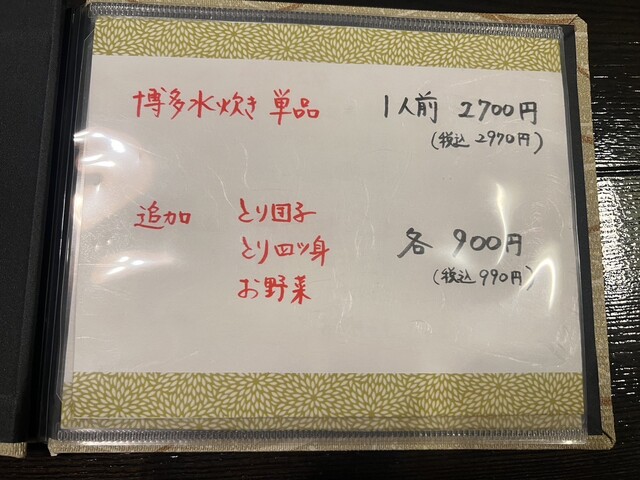 博多水炊き 単品 1人前 2700円
(税込 2970円)
追加 とり団子
とり四ツ身 各 900円
お野菜 (税込 990円)